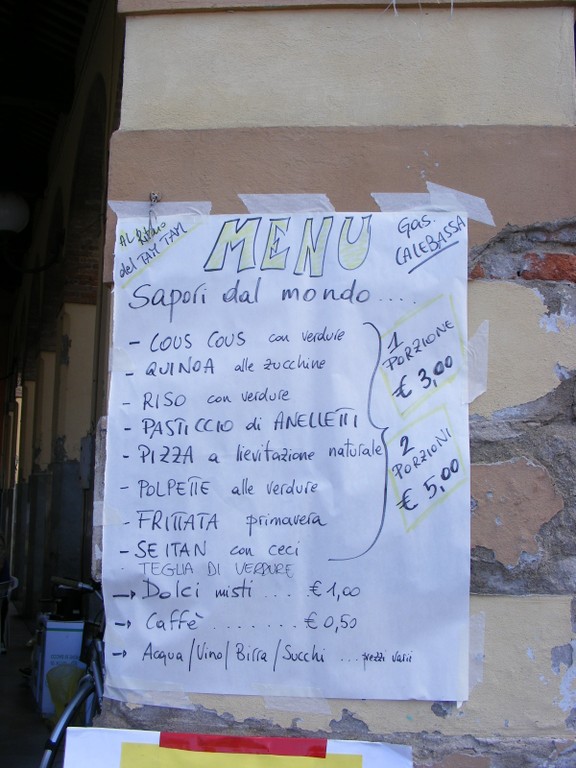 AL Ritmo
del TAM TAM
MENU
Gas.
CALEBASSA
Sapori dal mondo....
- COUS COUS con verdure
- QUINOA alle zucchine
- RISO con verdure
- PASTICCIO di ANELLETTI
- PIZZA a lievitazione naturale
- POLPETTE alle verdure
- FRITTATA primavera
- SEITAN con ceci
- TEGLIA DI VERDURE
1
PORZIONE
€ 3,00
2
PORZIONI
€ 5,00
→ Dolci misti ... € 1,00
→ Caffè ....... € 0,50
→ Acqua/Vino/Birra/Succhi ... prezzi varii